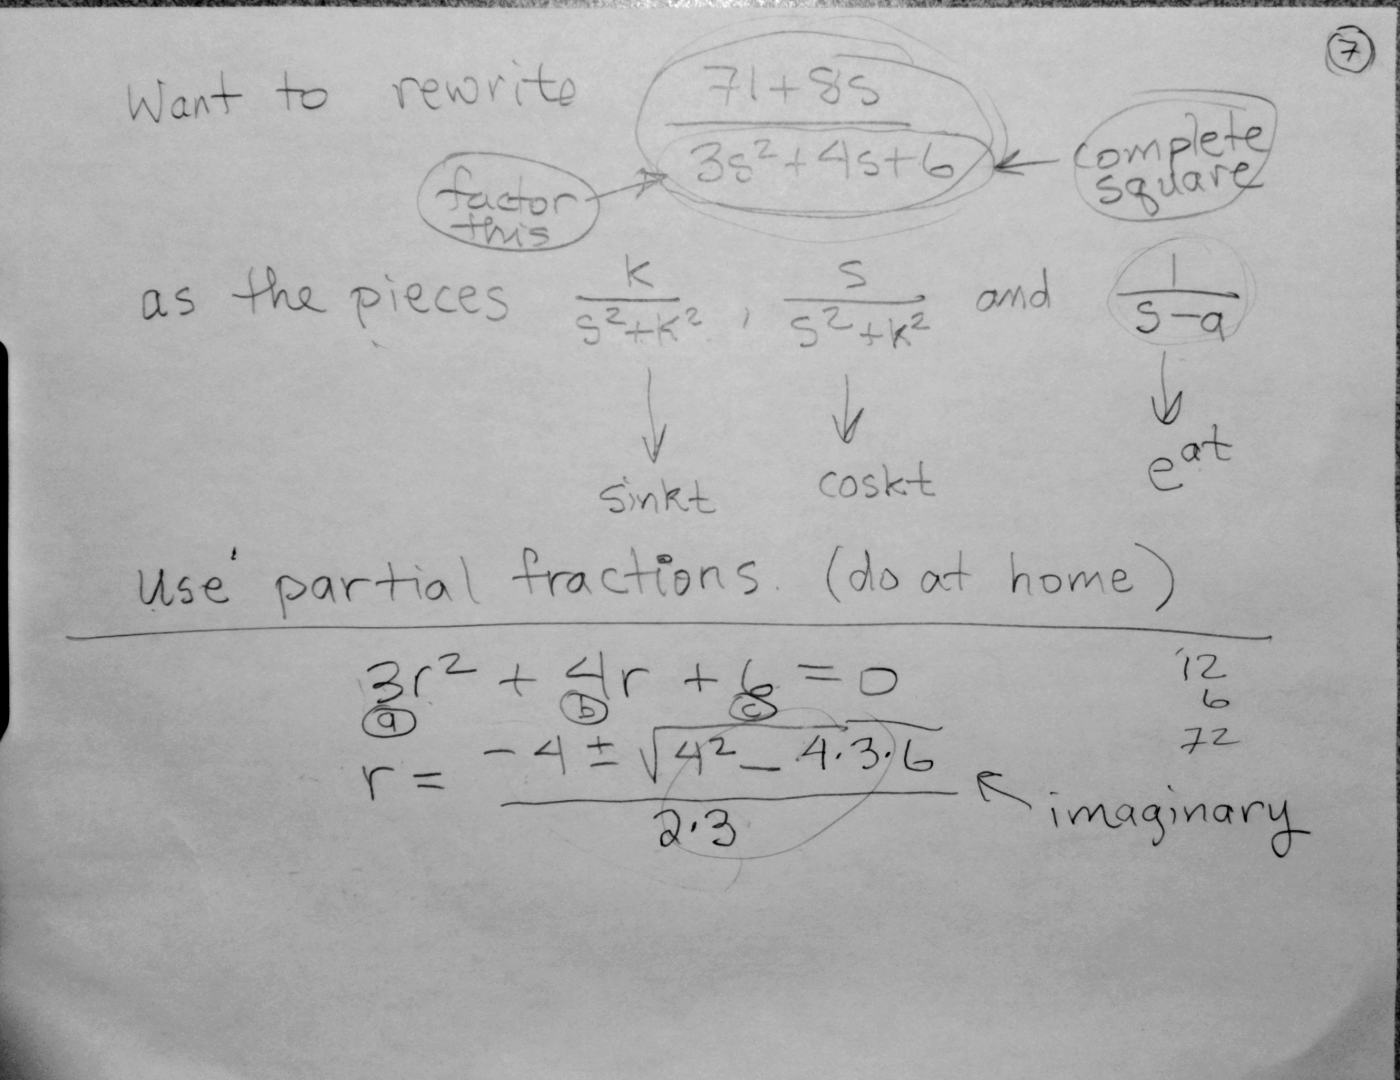 7
Want to rewrite 71+8s / 3s²+4s+6
complete square
factor this
as the pieces k/s²+k² , s/s²+k² and 1/s-a
sinkt coskt e^at
Use partial fractions. (do at home)
3r² + 4r + 6 = 0
a b c
12
6
72
r = -4 ± √4² - 4·3·6 / 2·3
imaginary